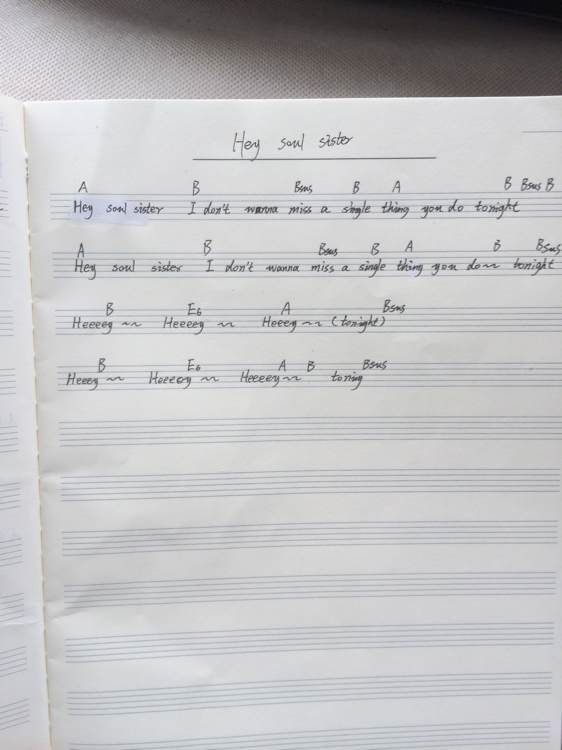 Hey soul sister
A B Bsus B A B Bsus B
Hey soul sister I don't wanna miss a single thing you do tonight
A B Bsus B A B Bsus
Hey soul sister I don't wanna miss a single thing you do~ tonight
B E6 A Bsus
Heeeey ~ Heeeey ~ Heeey ~ (tonight)
B E6 A B Bsus
Heeey ~ Heeeey ~ Heeeey ~ tonig